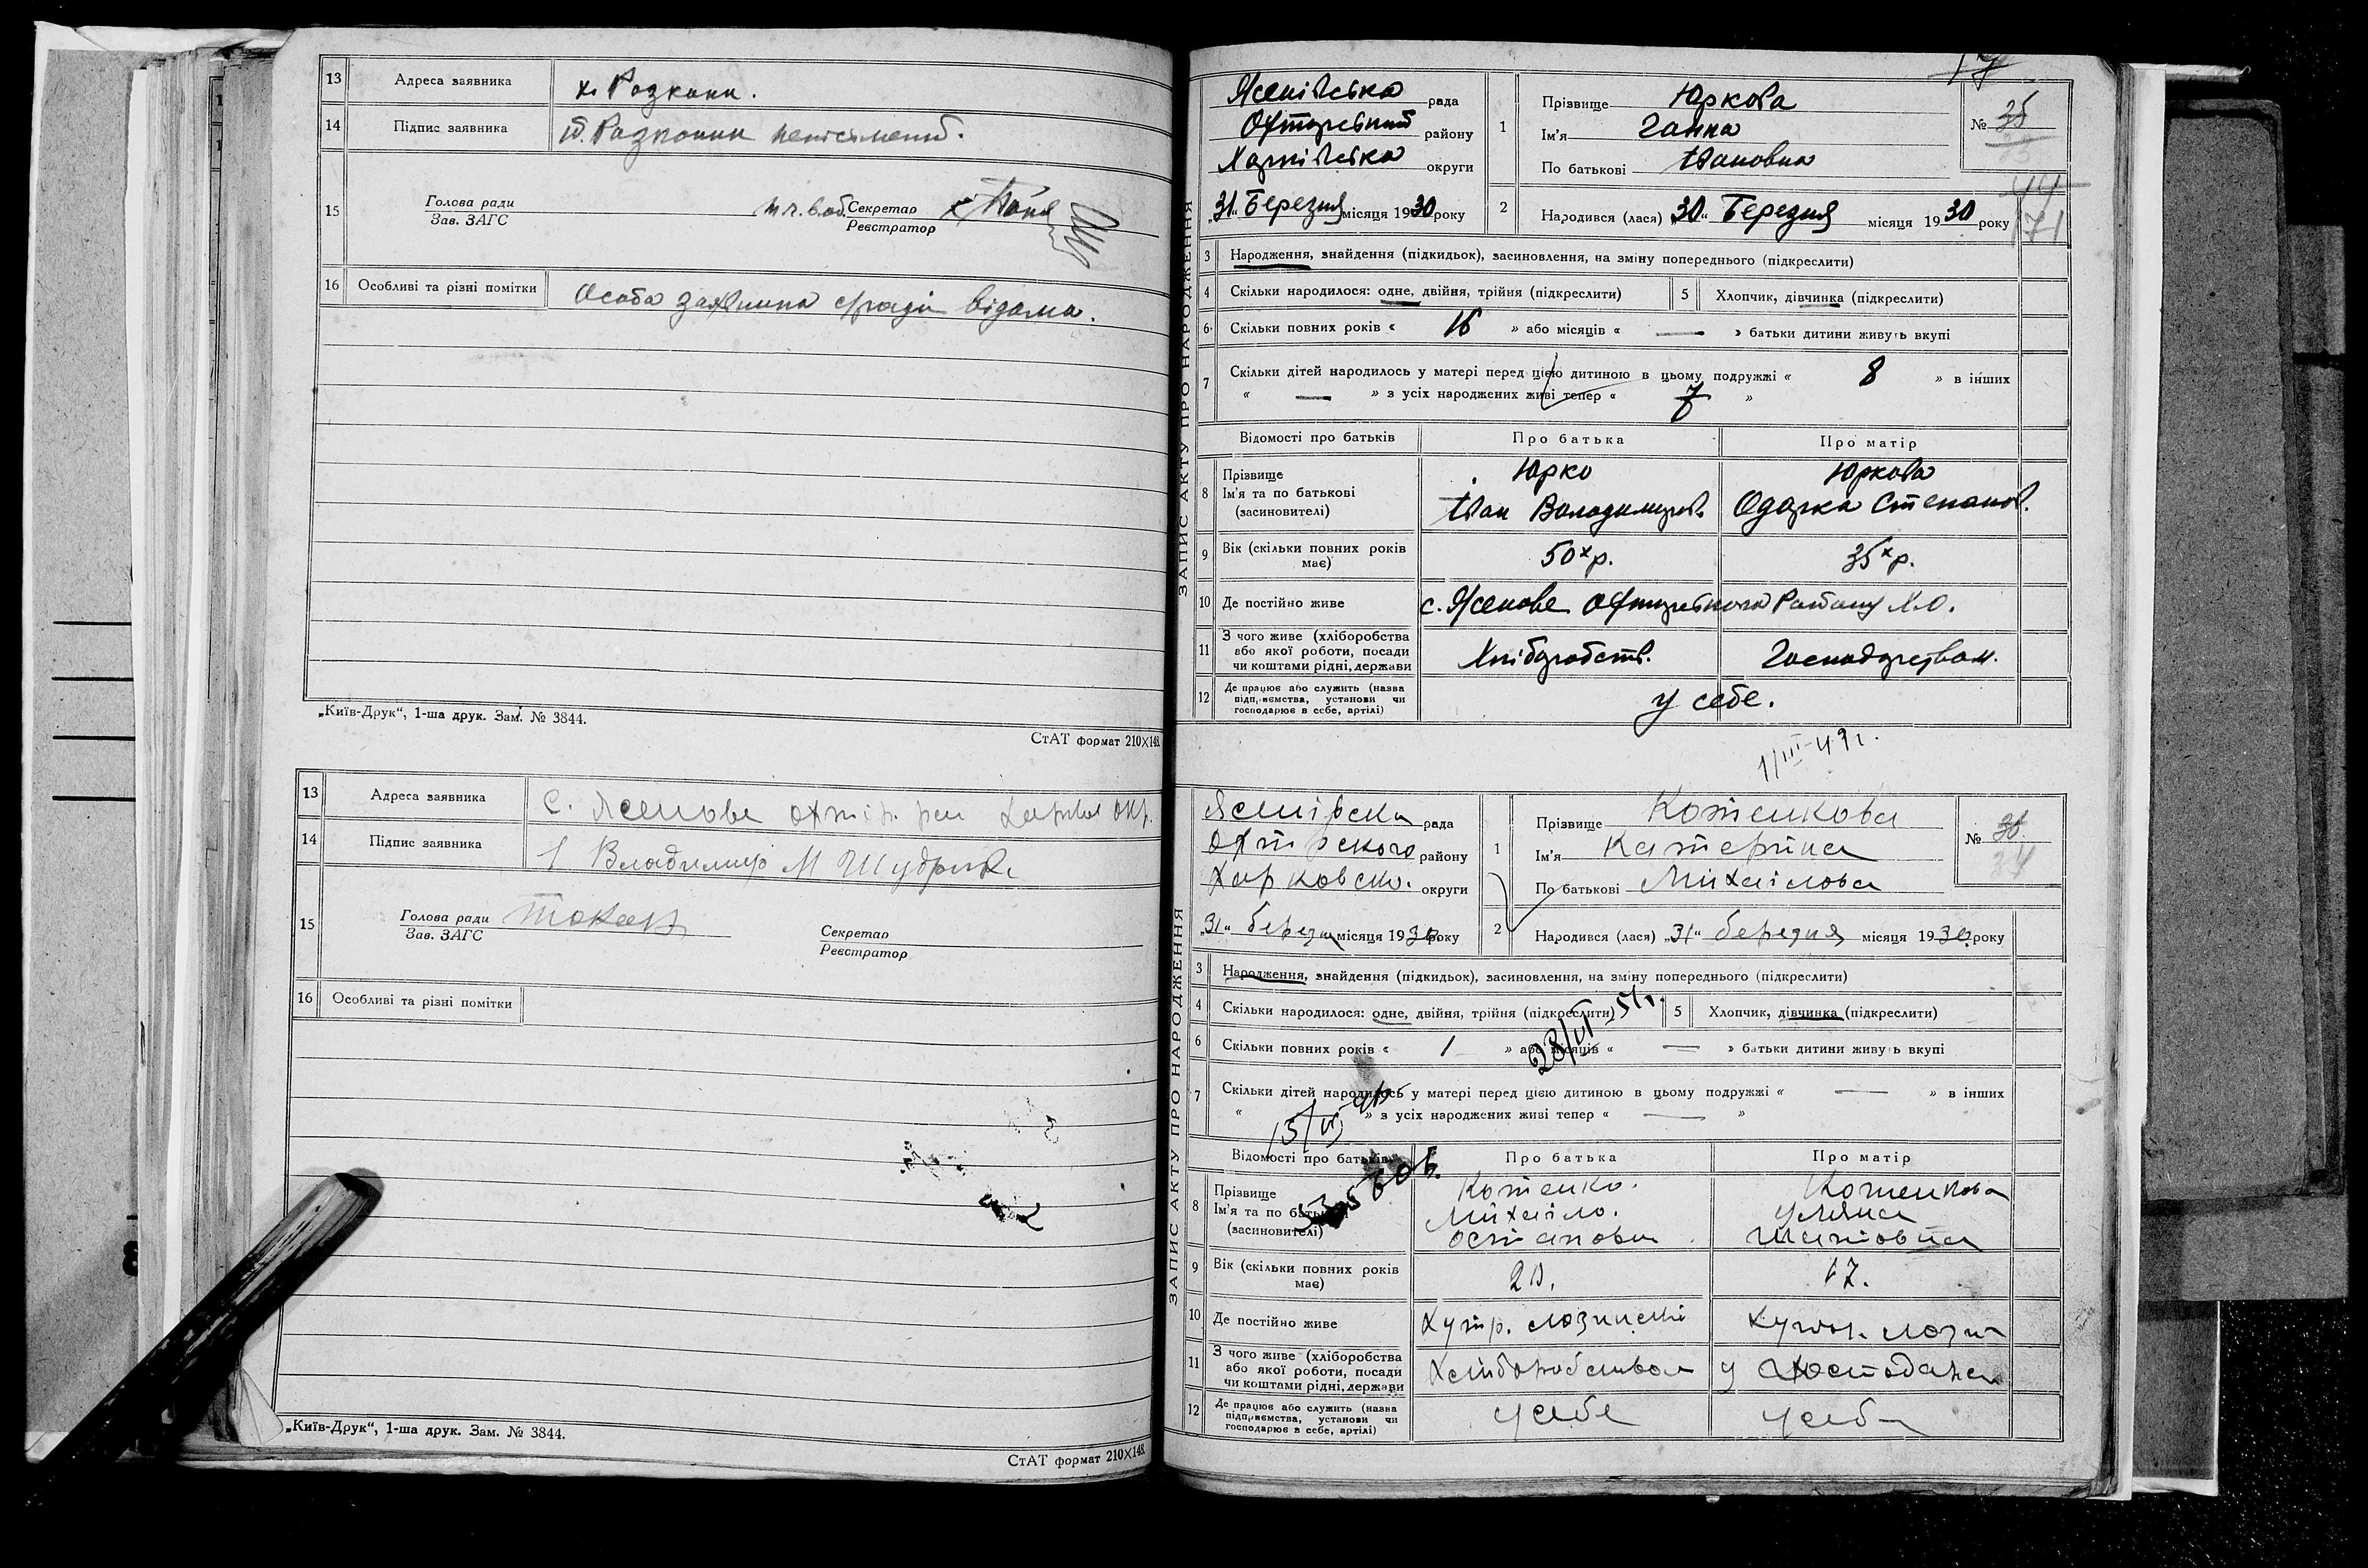 13 Адреса заявника х. Розкопи.
14 Підпис заявника неписьмений.
15 Голова ради Секретар
Зав. ЗАГС Реєстратор
16 Особливі та різні помітки Особа заявника сраді відома.
„Київ-Друк“, 1-ша друк. Зам. № 3844.
СтАТ формат 210×148.
13 Адреса заявника С. Ясенове Охтір. рай Харків окр.
14 Підпис заявника Владимир М
15 Голова ради Токар Секретар
Зав. ЗАГС Реєстратор
16 Особливі та різні помітки
„Київ-Друк“, 1-ша друк. Зам. № 3844.
СтАТ формат 210×148.
ЗАПИС АКТУ ПРО НАРОДЖЕННЯ
Ясенівська рада
Охтирський району
Харківська округи
„31“ Березня місяця 1930 року
1 Прізвище Юркова
Ім'я Ганна
По батькові Івановна
№ 35
44
171
2 Народився (лася) „30“ Березня місяця 1930 року
3 Народження, знайдення (підкидьок), засиновлення, на зміну попереднього (підкреслити)
4 Скільки народилося: одне, двійня, трійня (підкреслити) 5 Хлопчик, дівчинка (підкреслити)
6 Скільки повних років « 16 » або місяців « — » батьки дитини живуть вкупі
7 Скільки дітей народилось у матері перед цією дитиною в цьому подружжі « 8 » в інших
« — » з усіх народжених живі тепер « 7 »
Відомості про батьків Про батька Про матір
8 Прізвище Юрко Юркова
Ім'я та по батькові Іван Володимиров. Одарка Степанов.
(засиновителі)
9 Вік (скільки повних років має) 50х р. 35х р.
10 Де постійно живе с. Ясенове Охтирського Району Х.О.
11 З чого живе (хліборобства Хліборобств. Господарством.
або якої роботи, посади
чи коштами рідні, держави
12 Де працює або служить (назва у себе.
підприємства, установи чи
господарює в себе, артілі)
1/III-49г.
ЗАПИС АКТУ ПРО НАРОДЖЕННЯ
рада
Охтірского району
Харковско. округи
„31“ березня місяця 1930 року
1 Прізвище Котенкова
Ім'я Катерина
По батькові Михаілова
№ 36
34
2 Народився (лася) „31“ березня місяця 1930 року
3 Народження, знайдення (підкидьок), засиновлення, на зміну попереднього (підкреслити)
4 Скільки народилося: одне, двійня, трійня (підкреслити) 5 Хлопчик, дівчинка (підкреслити)
28/VI-51г.
6 Скільки повних років « 1 » або місяців « — » батьки дитини живуть вкупі
7 Скільки дітей народилось у матері перед цією дитиною в цьому подружжі « — » в інших
« » з усіх народжених живі тепер « — »
Відомості про батьків Про батька Про матір
8 Прізвище Котенко. Котенкова
Ім'я та по батькові Михаіло. Уляна
(засиновителі) Остапови
9 Вік (скільки повних років має) 20. 17.
10 Де постійно живе Хутор.
11 З чого живе (хліборобства Хліборобством
або якої роботи, посади
чи коштами рідні, держави
12 Де працює або служить (назва усебе усебе
підприємства, установи чи
господарює в себе, артілі)